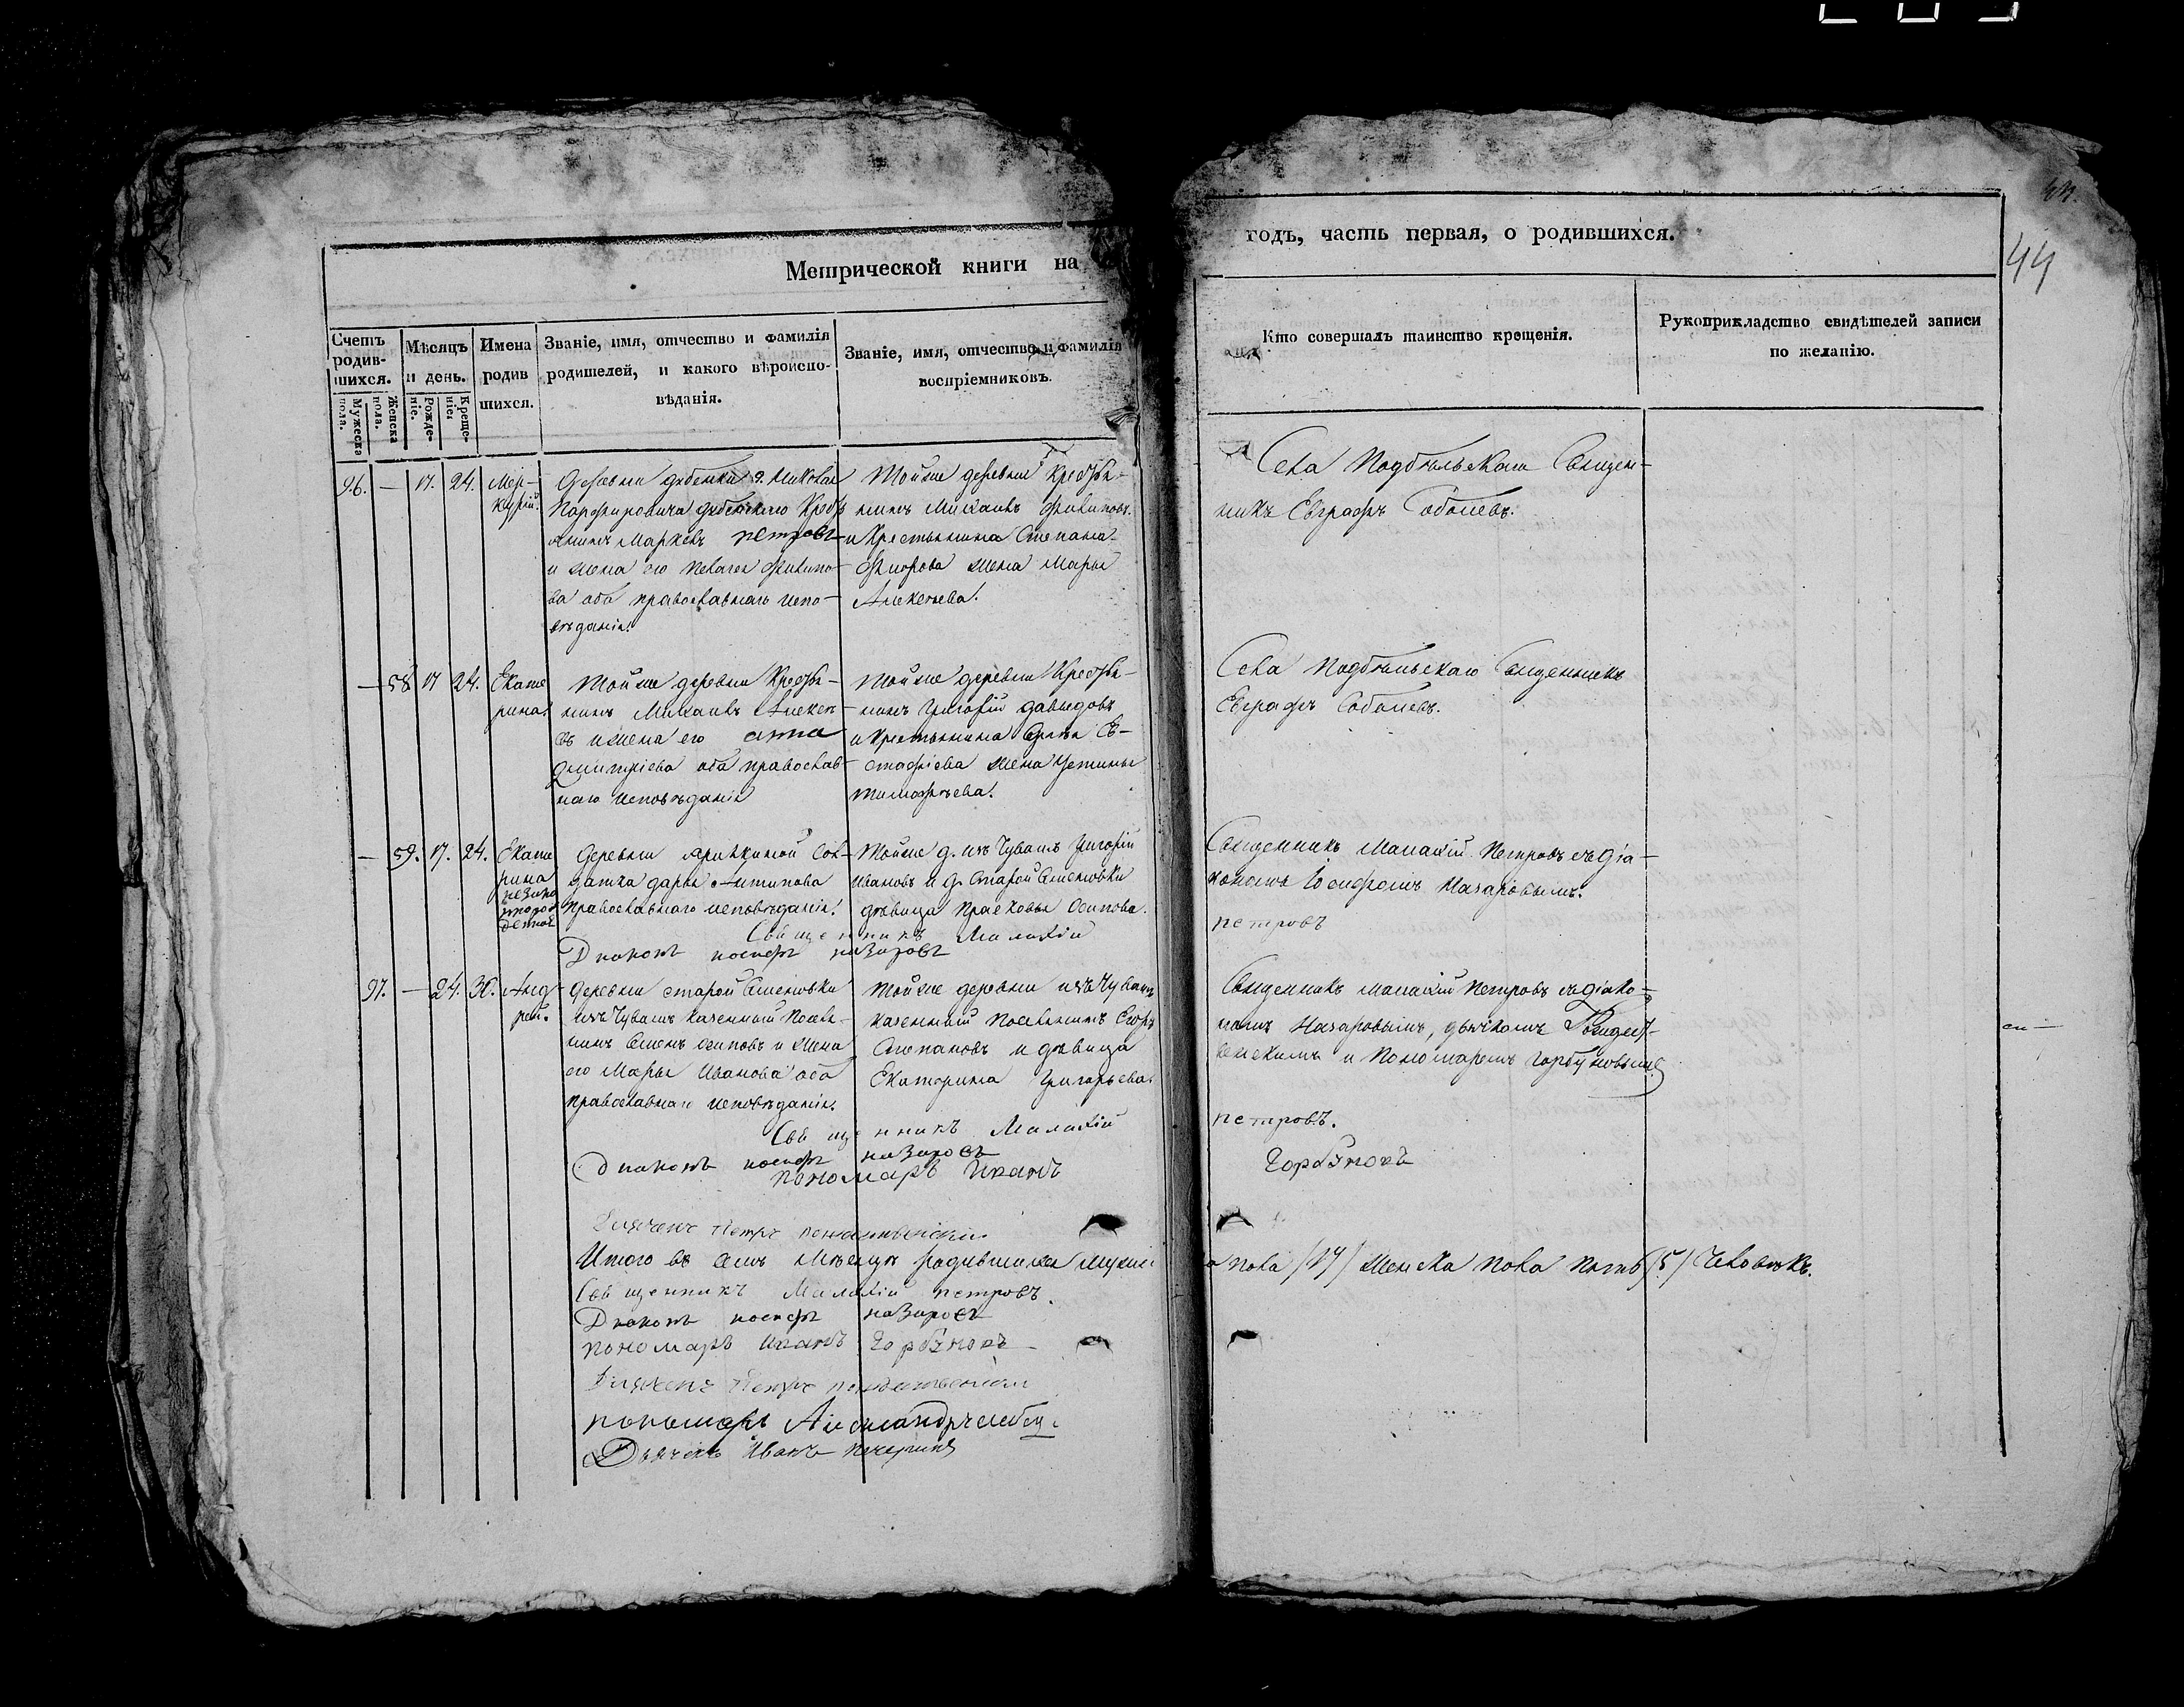 44
Метрической книги на
годъ, часть первая, о родившихся.
Счетъ родив-шихся.
Мужеска пола.
Женска пола.
Мѣсяцъ и день.
Рожде-ніе.
Креще-ніе.
Имена родив шихся.
Званіе, имя, отчество и фамилія
родителей, и какого вѣроиспо-
вѣданія.
Званіе, имя, отчество и фамилія
воспріемниковъ.
Кто совершалъ таинство крещенія.
Рукоприкладство свидѣтелей записи
по желанію.
96. — 17. 24. Мер-
курій.
Деревни
марковъ петровъ
и жена его Пелагея Филипо-
ва оба православнаго испо-
вѣданія.
Тойже деревни Крестья-
нинъ Михаилъ Филиповъ
и Крестьянина Степана
жена Марья
Алексѣева.
Села Подбѣльскаго Священ-
никъ Евграфъ Соболевъ.
— 58 17 24. Екате
рина.
Тойже деревни Крестья-
нинъ Михаилъ Алексѣ-
въ и жена его анна
Дмитріева оба православ-
наго исповѣданія
Тойже деревни Крестья-
нинъ Григорій давыдовъ
и Крестьянина Ев-
стафіева жена Устинья
Тимофѣева.
Села Подбѣльскаго Священникъ
Евграфъ Соболевъ.
— 59. 17. 24. Екате
рина
незако
нород
денная
Деревни Сол-
датка дарья Антипова
православнаго исповѣданія.
Тойже д. изъ Чувашъ Григорій
Ивановъ и д. Старой Семеновки
дѣвица Прасковья Осипова.
Священникъ Малахій Петровъ съ діа-
кономъ Іосифомъ Назаровымъ.
Священникъ Малахій
петровъ
Диаконъ иосифъ назаровъ
97. — 24. 30. Анд-
рей.
Деревни старой Семеновки
изъ Чувашъ казенный поселя-
нинъ Семенъ Осиповъ и жена
его Марья Иванова оба
православнаго исповѣданія.
Тойже деревни изъ Чувашъ
казенный поселянинъ Егоръ
Степановъ и дѣвица
Екатерина Григорьева.
Священникъ малахій Петровъ съ діако-
номъ Назаровымъ, дьячкомъ Рождест-
венскимъ и Пономаремъ Горбуновымъ
Священникъ Малахій
петровъ.
Диаконъ иосифъ назаровъ
пономарь Иванъ
Горбуновъ
Дьячекъ Петръ рождественскій
Итого въ семъ Мѣсяцѣ родившихся мужес
а пола /17/ женска пола пять /5/ Человѣкъ.
Священникъ Малахій петровъ.
Диаконъ иосифъ назаровъ
пономарь Иванъ Горбуновъ
Дьячекъ Петръ рождественскій
пономарь
Дьячекъ Иванъ